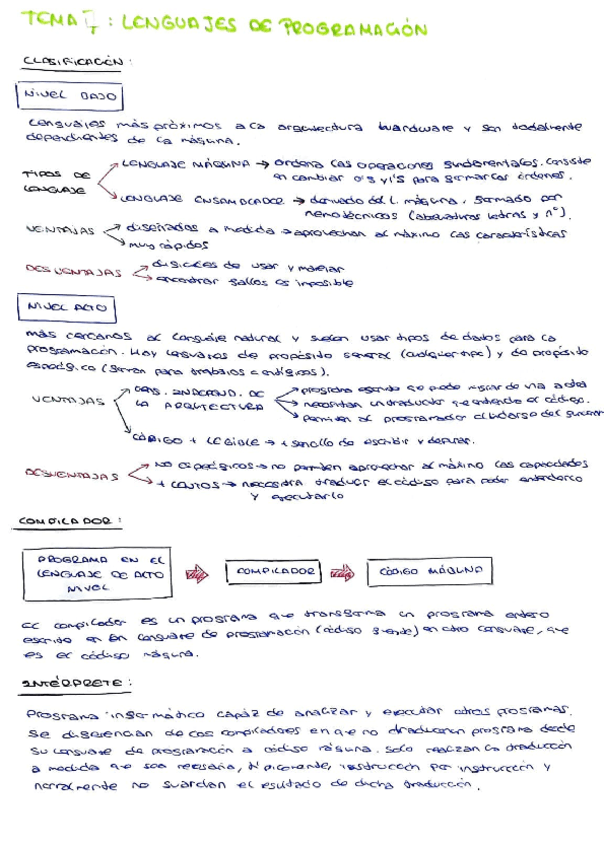 TEMA 1: LENGUAJES DE PROGRAMACIÓN
CLASIFICACIÓN:
NIVEL BAJO
Lenguajes más próximos a la arquitectura hardware y son totalmente
dependientes de la máquina.
TIPOS DE
LENGUAJE
LENGUAJE MÁQUINA → ordena las operaciones fundamentales. Consiste
en cambiar 0's y 1's para formar las órdenes.
LENGUAJE ENSAMBLADOR → derivado del l. máquina, formado por
nemotécnicos (abreviaturas letras y nº).
VENTAJAS
diseñados a medida → aprovechan al máximo las características
muy rápidos
DESVENTAJAS
difíciles de usar y manejar
encontrar fallos es imposible
NIVEL ALTO
más cercanos al lenguaje natural y suelen usar tipos de datos para la
programación. Hay lenguajes de propósito general (cualquier tipo) y de propósito
específico (sirven para trabajos).
VENTAJAS
INDEPEND. DE
LA ARQUITECTURA
programa escrito que puede migrar de una a otra
necesitan un traductor que entienda el código.
permiten al programador olvidarse del
CÓDIGO + LEGIBLE → + sencillo de escribir y depurar.
DESVENTAJAS
NO específicos → no permiten aprovechar al máximo las capacidades
+ LENTOS → necesita traducir el código para poder entenderlo
y ejecutarlo
COMPILADOR:
PROGRAMA EN EL
LENGUAJE DE ALTO
NIVEL
COMPILADOR
CÓDIGO MÁQUINA
El compilador es un programa que transforma un programa entero
escrito en un lenguaje de programación (código fuente) en otro lenguaje, que
es el código máquina.
INTÉRPRETE:
Programa informático capaz de analizar y ejecutar otros programas.
Se diferencian de los compiladores en que no traducen un programa desde
su lenguaje de programación a código máquina. Solo realizan la traducción
a medida que sea necesaria, típicamente, instrucción por instrucción y
normalmente no guardan el resultado de dicha traducción.